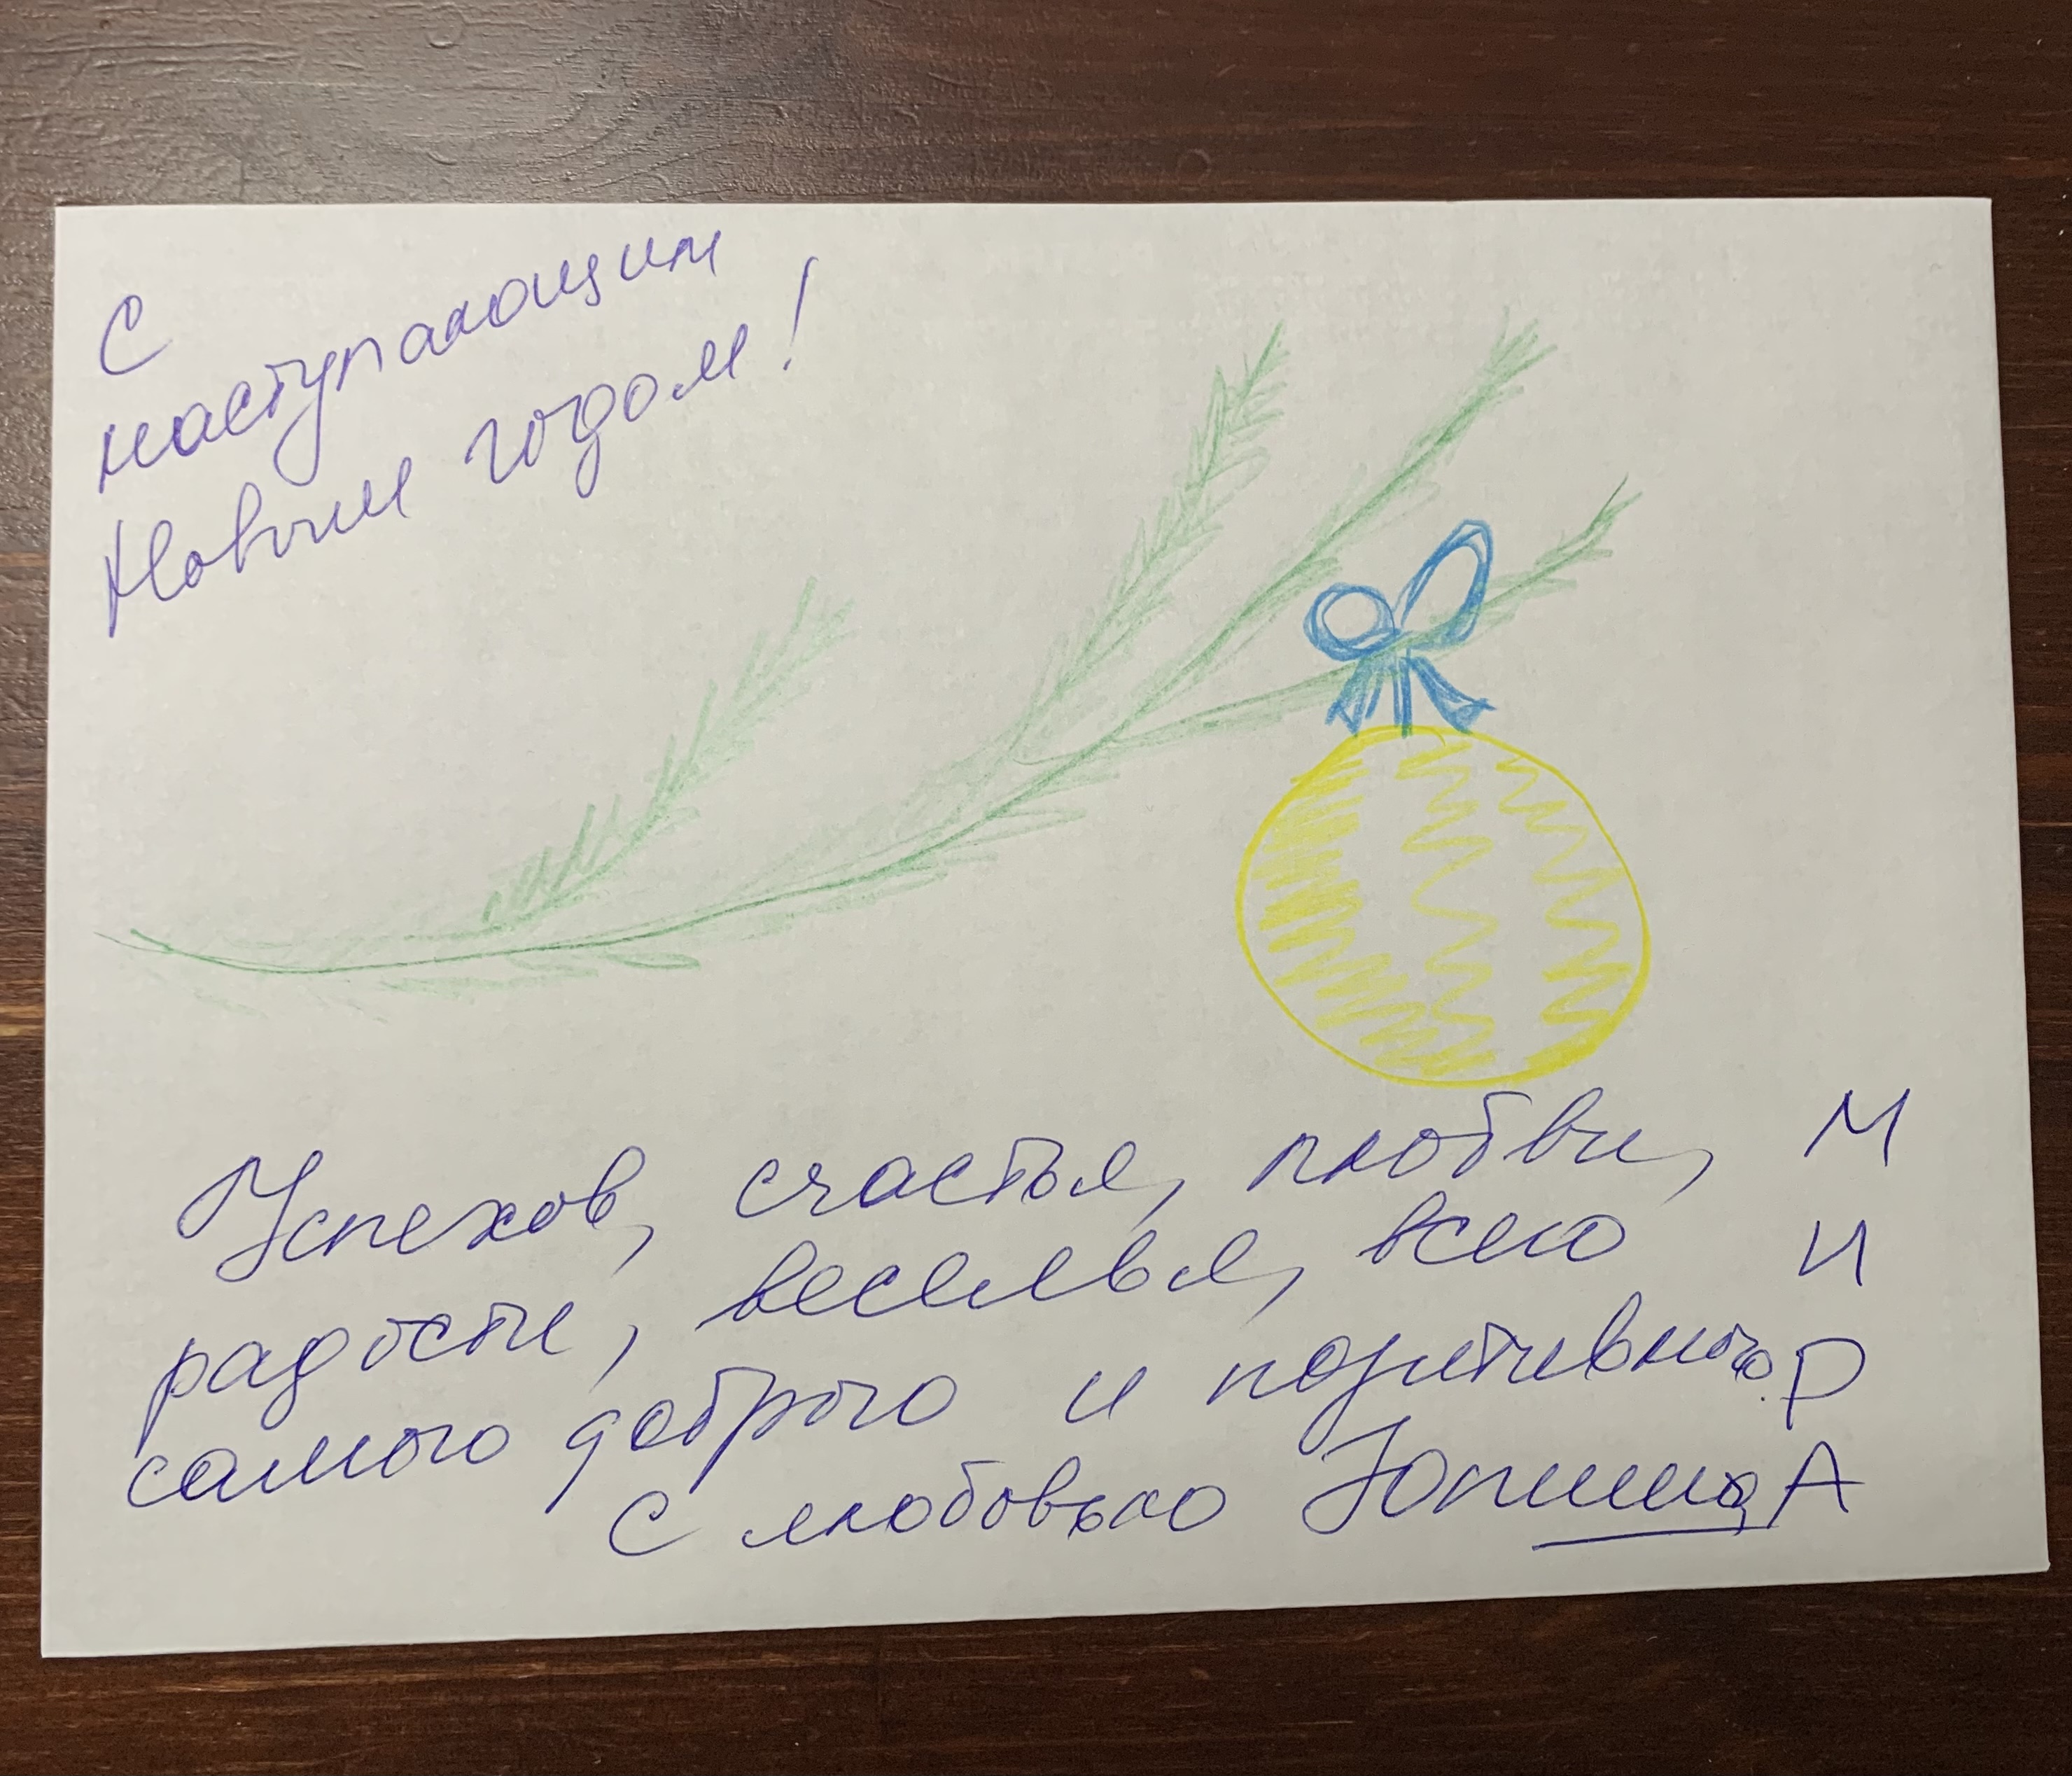 С
наступающим
Новым годом!
Успехов, счастья, любви,
радости, веселья, всего
самого доброго и позитивного.
С любовью
МИРА